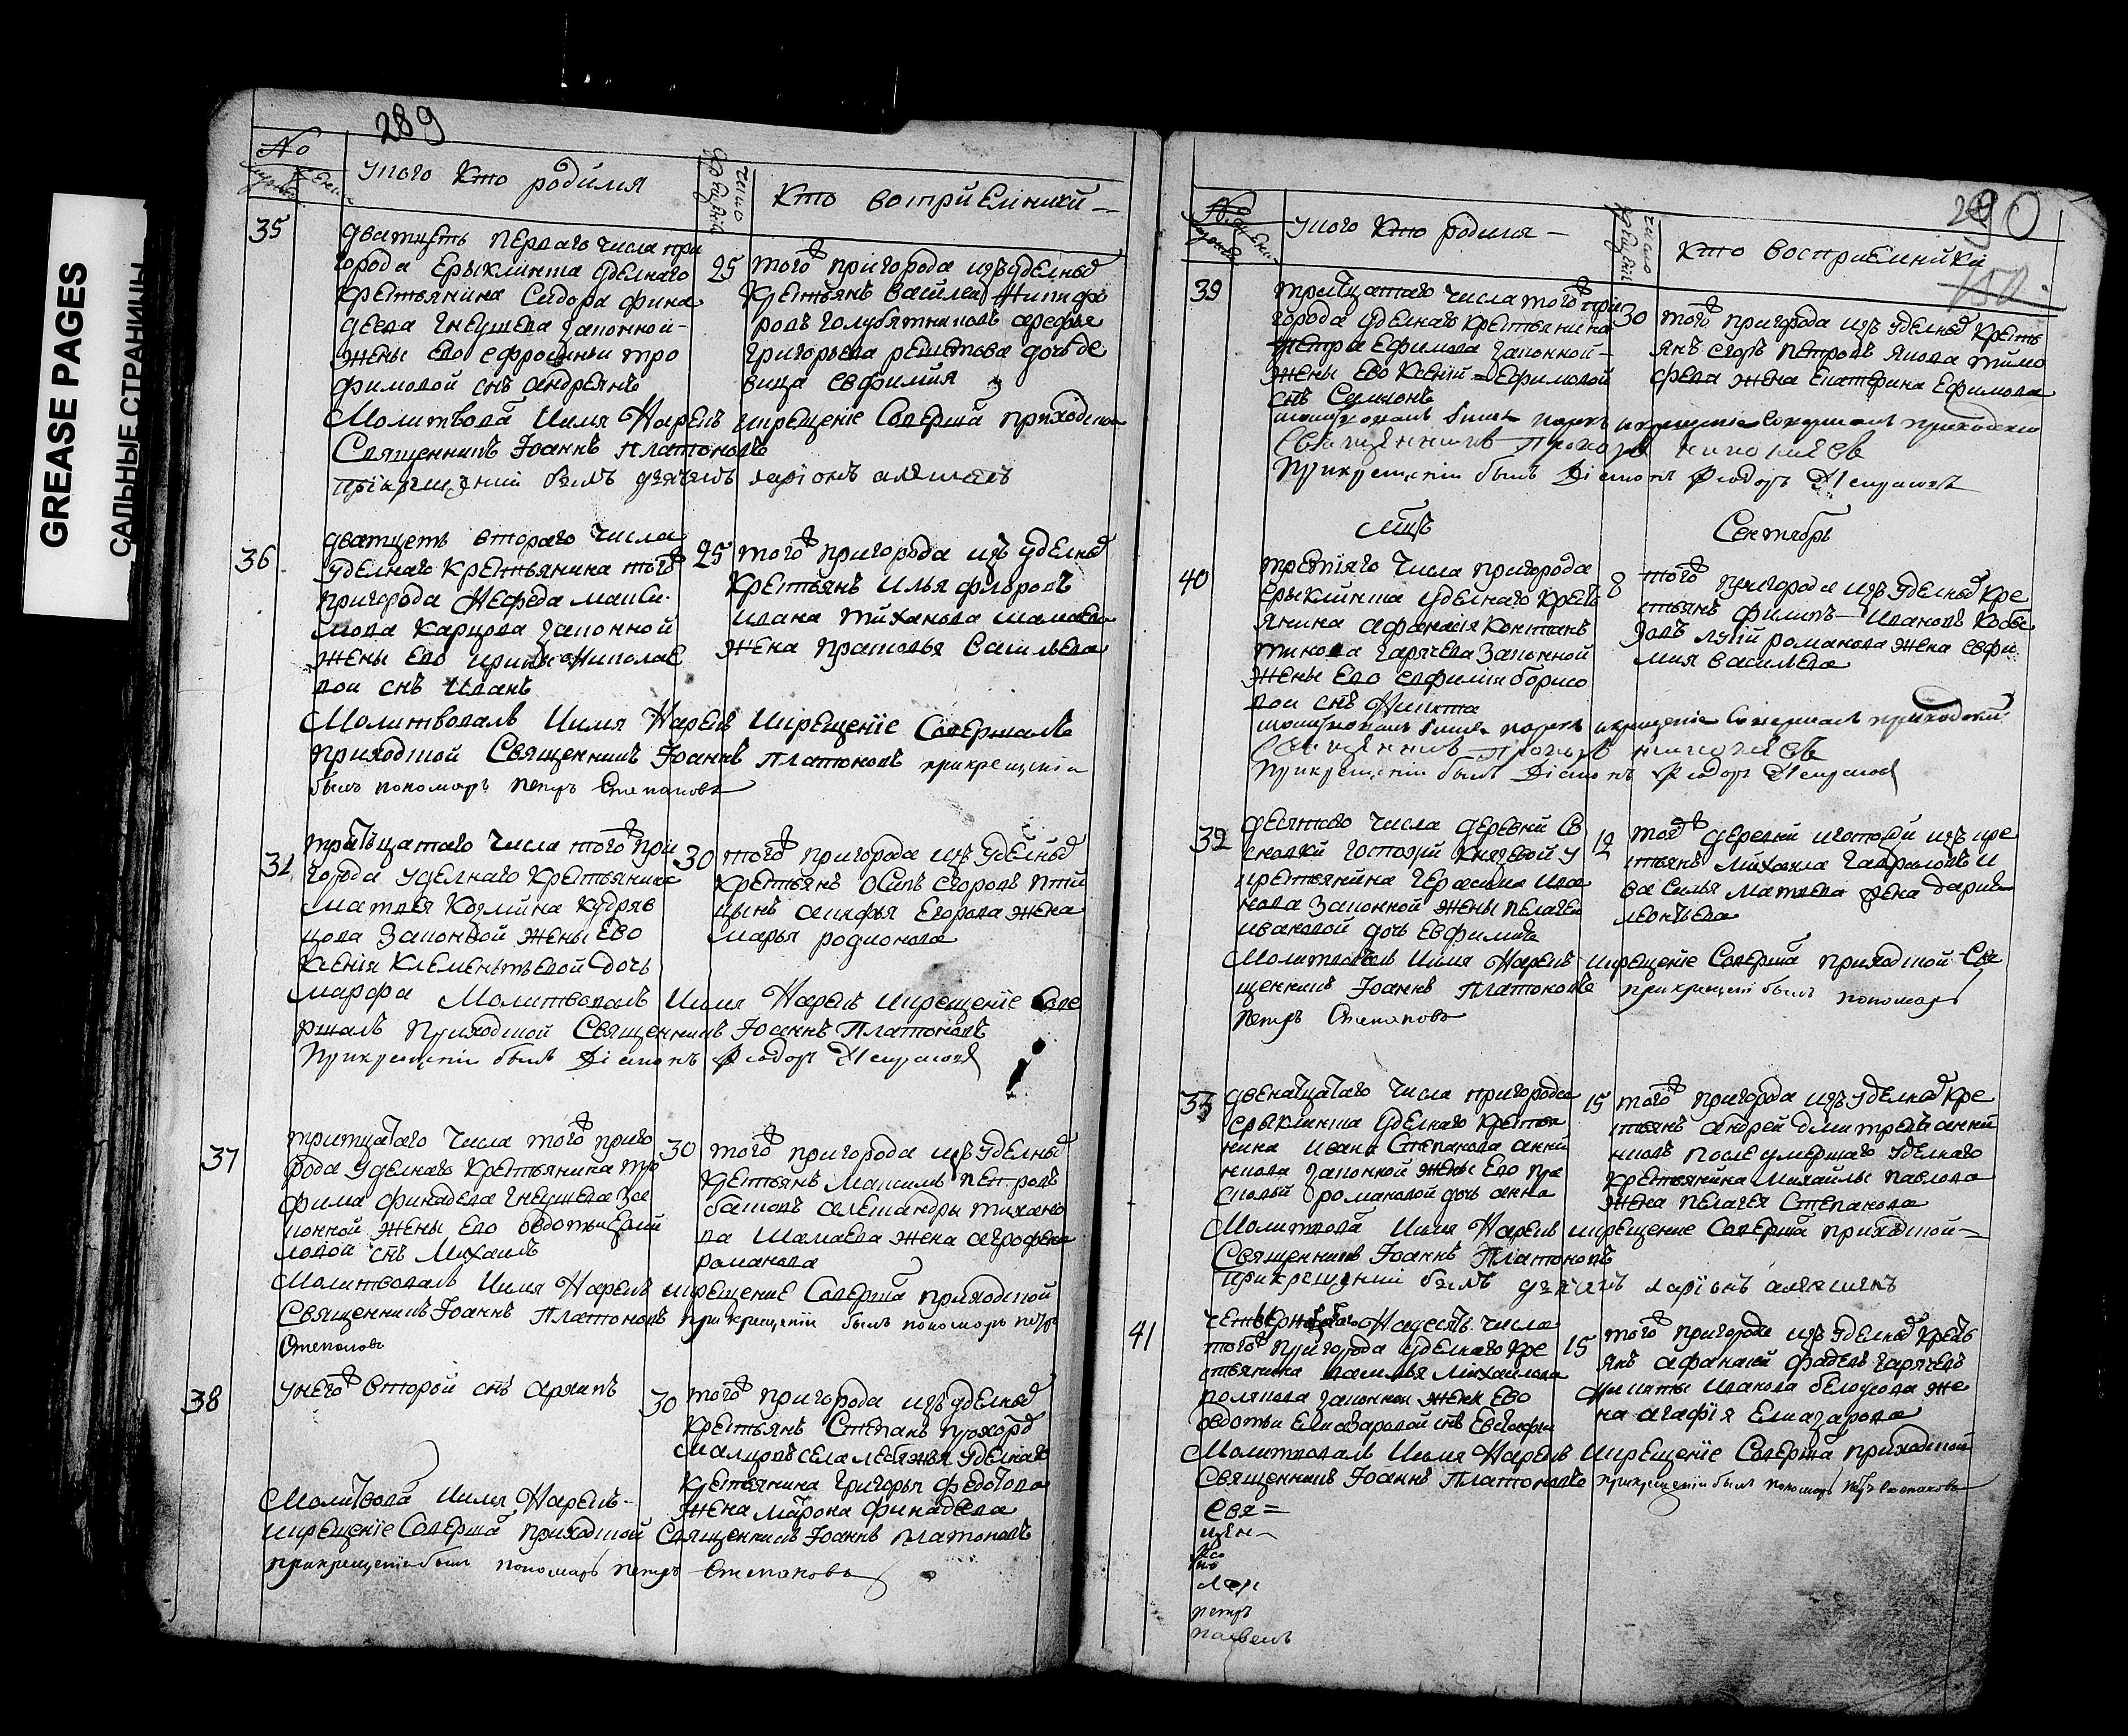 GREASE PAGES
САЛЬНЫЕ СТРАНИЦЫ
289
No
у кого кто родился
число крещенiй
кто востриемники
35
дватцеть перваго числа при
города Ерыклинта уделнаго
крестьянина Сидора фина
деева гнеушева законной
жены ево ефросиньи тро
фимовой снъ андреянъ
25
того пригорода изъ уделныхъ
крестьянъ Василеи Никифо
ровъ голубятниковъ арефья
григорьева решетова дочь де
вица евфимия
Молитвовалъ Имя Нарекъ икрещенiе Соверша приходской
Священникъ Iоаннъ Платоновъ
прикрещенiи былъ дьячекъ ларiонъ
36
дватцеть втораго числа
уделнаго крестьянина того
пригорода Нефеда макси
мова карцова законной
жены ево ирины Николае
вои снъ Иванъ
25
того пригорода изъ уделныхъ
крестьянъ Илья фроловъ
ивана тиханова шамаева
жена праковья Василева
Молитвовалъ Имя Нарекъ Икрещенiе Совершалъ
приходской Священникъ Iоаннъ Платоновъ прикрещенiи
былъ пономарь Петръ Степановъ
31
тритцатаго числа того при
города уделнаго крестьянина
матвея Козмина кудряв
цова Законной жены Ево
Ксения Клементьевой дочь
марфа Молитвовалъ Имя Нарекъ Икрещенiе Сове
30
того пригорода изъ уделныхъ
крестьянъ осипъ егоровъ пти
цынъ Егорова жена
марья родионова
ршалъ Приходской Священникъ Iоаннъ Платоновъ
Прикрещенiи былъ Дiаконъ Феодоръ
37
тритцатаго числа того приго
рода уделнаго крестьянина тро
фима финадеева гнеушева за
конной жены ево овдотьи
мовой снъ Михаилъ
30
того пригорода изъ уделныхъ
крестьянъ Максимъ петровъ
александры тихано
ва шамаева жена аграфена
романова
Молитвовалъ Имя Нарекъ икрещение Соверша приходской
Священникъ Iоаннъ Платоновъ прикрещенiи былъ пономарь петръ
Степановъ
38
унего второй снъ архипъ
30
того пригорода изъ уделныхъ
крестьянъ Степанъ прохоровъ
села лебяжья уделнаго
крестьянина григорья федотова
жена марона финадеева
Молитвова Имя Нарекъ
икрещенiе Соверша приходской Священникъ Iоаннъ платоновъ
прикрещенiи былъ пономарь петръ Степановъ
290
152
у кого кто родился
число крещенiй
кто восприемники
39
тритцатаго числа того при
города уделнаго крестьянина
петра Ефимова законной
жены ево Ксенiи Ефимовой
снъ Семионъ
30
того пригорода изъ уделныхъ кресть
янъ егоръ петровъ якова тимо
феева жена Екатерина Ефимова
имя нарекъ икрещение совершалъ приходской
Священникъ прохоръ николаевъ
Прикрещенiи былъ Дiаконъ Феодоръ
мцъ
Сентябрь
40
третiяго числа пригорода
ерыклинта уделнаго кресть
янина афанасия констан
тинова гарячева законной
жены ево евфимии борисо
вои снъ Никита
8
того пригорода изъ уделныхъ кре
стьянъ филипъ ивановъ
романова жена евфи
мия василева
имя нарекъ икрещение совершалъ приходской
Священникъ прохоръ николаевъ
Прикрещенiи былъ Дiаконъ Феодоръ
32
десятаго числа деревни
госпожи Князевой у
крестьянина герасима ива
нова законной жены пелагеи
ивановой дочь Евфимия
12
той деревни игоспожи изъ кре
стьянъ михаила гавриловъ и
василья матвеева жена дарья
леонтьева
Молитвовалъ Имя Нарекъ икрещенiе Соверша приходской Свя
щенникъ Iоаннъ Платоновъ прикрещенiи былъ пономарь
петръ Степановъ
33
двенатцатаго числа пригорода
ерыклинта уделнаго крестья
нина ивана Степанова анни
кова законной жены Ево пра
сковьи романовой дочь анна
15
того пригорода изъ уделныхъ кре
стьянъ андрей дмитревъ анни
ковъ после умершаго уделнаго
крестьянина михайлы павлова
жена пелагея Степанова
Молитвова Имя Нарекъ икрещение Соверша приходской
Священникъ Iоаннъ Платоновъ
прикрещенiи былъ дьячекъ ларiонъ
41
четвертаго Надесять числа
того пригорода уделнаго кре
стьянина василья михаилова
полякова законной жены ево
овдотьи Елиазаровой снъ
15
того пригорода изъ уделныхъ кресть
янъ афанасий фадеевъ гарячевъ
никиты иванова белоусова же
на агафiя Елиазарова
Молитвовалъ Имя Нарекъ Икрещенiе Соверша приходской
Священникъ Iоаннъ Платоновъ прикрещенiи былъ пономарь петръ Степановъ
Свя=
щен-
по
но
марь
петръ
павелъ